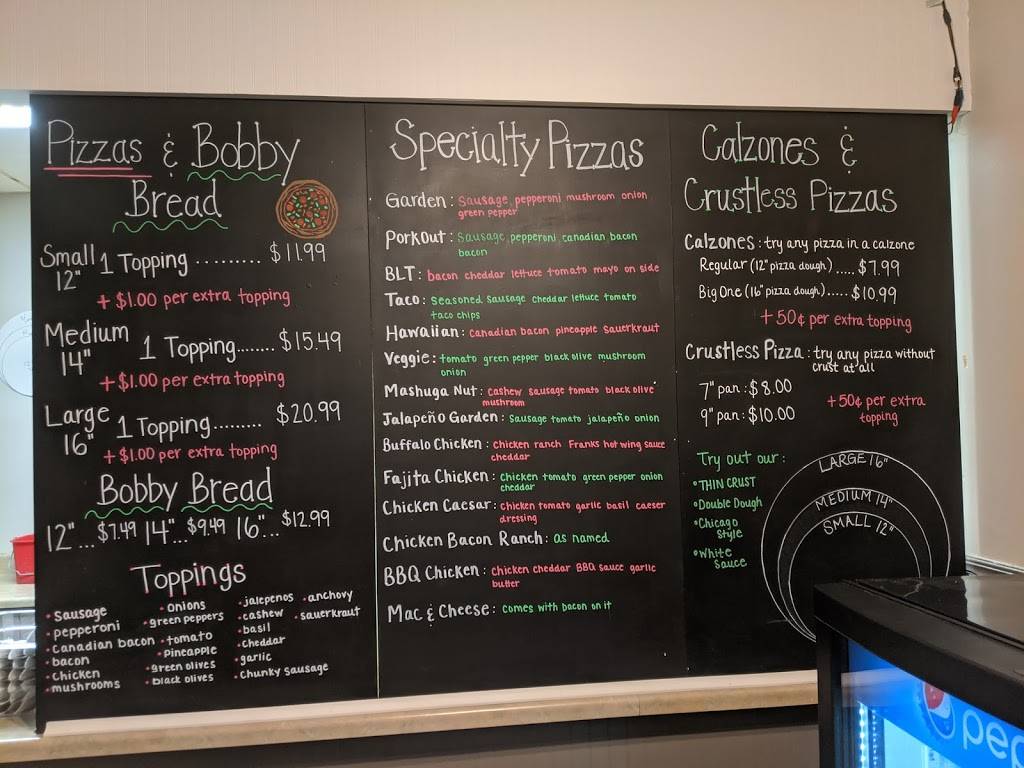 Pizzas & Bobby
Bread
Small 1 Topping ......... $11.99
12"
+ $1.00 per extra topping
Medium 1 Topping........ $15.49
14"
+ $1.00 per extra topping
Large 1 Topping......... $20.99
16"
+ $1.00 per extra topping
Bobby Bread
12"...$7.49 14"...$9.49 16"... $12.99
Toppings
• Sausage
• pepperoni
• Canadian bacon
• bacon
• Chicken
• mushrooms
• onions
• green peppers
• tomato
• Pineapple
• green olives
• black olives
• jalepenos
• cashew
• basil
• Cheddar
• garlic
• Chunky Sausage
• anchovy
• sauerkraut
Specialty Pizzas
Garden: Sausage, pepperoni mushroom onion
green pepper
Porkout: Sausage, pepperoni, canadian bacon
bacon
BLT: bacon cheddar lettuce tomato mayo on side
Taco: Seasoned Sausage cheddar lettuce tomato
taco chips
Hawaiian: canadian bacon pineapple sauerkraut
Veggie: tomato green pepper black olive mushroom
onion
Mashuga Nut: Cashew sausage tomato black olive
mushroom
Jalapeño Garden: Sausage tomato jalapeño onion
Buffalo Chicken: chicken ranch Franks hot wing sauce
cheddar
Fajita Chicken: Chicken tomato green pepper onion
cheddar
Chicken Caesar: chicken tomato garlic basil caeser
dressing
Chicken Bacon Ranch: as named
BBQ Chicken: chicken cheddar BBQ sauce garlic
butter
Mac & Cheese: comes with bacon on it
Calzones &
Crustless Pizzas
Calzones: try any pizza in a calzone
Regular (12" pizza dough)..... $7.99
Big One (16" pizza dough)..... $10.99
+ 50¢ per extra topping
Crustless Pizza: try any pizza without
crust at all
7" pan: $8.00
9" pan: $10.00
+50¢ per extra
topping
Try out our:
• THIN CRUST
• Double Dough
• Chicago
Style
• White
Sauce
LARGE 16"
MEDIUM 14"
SMALL 12"
pep